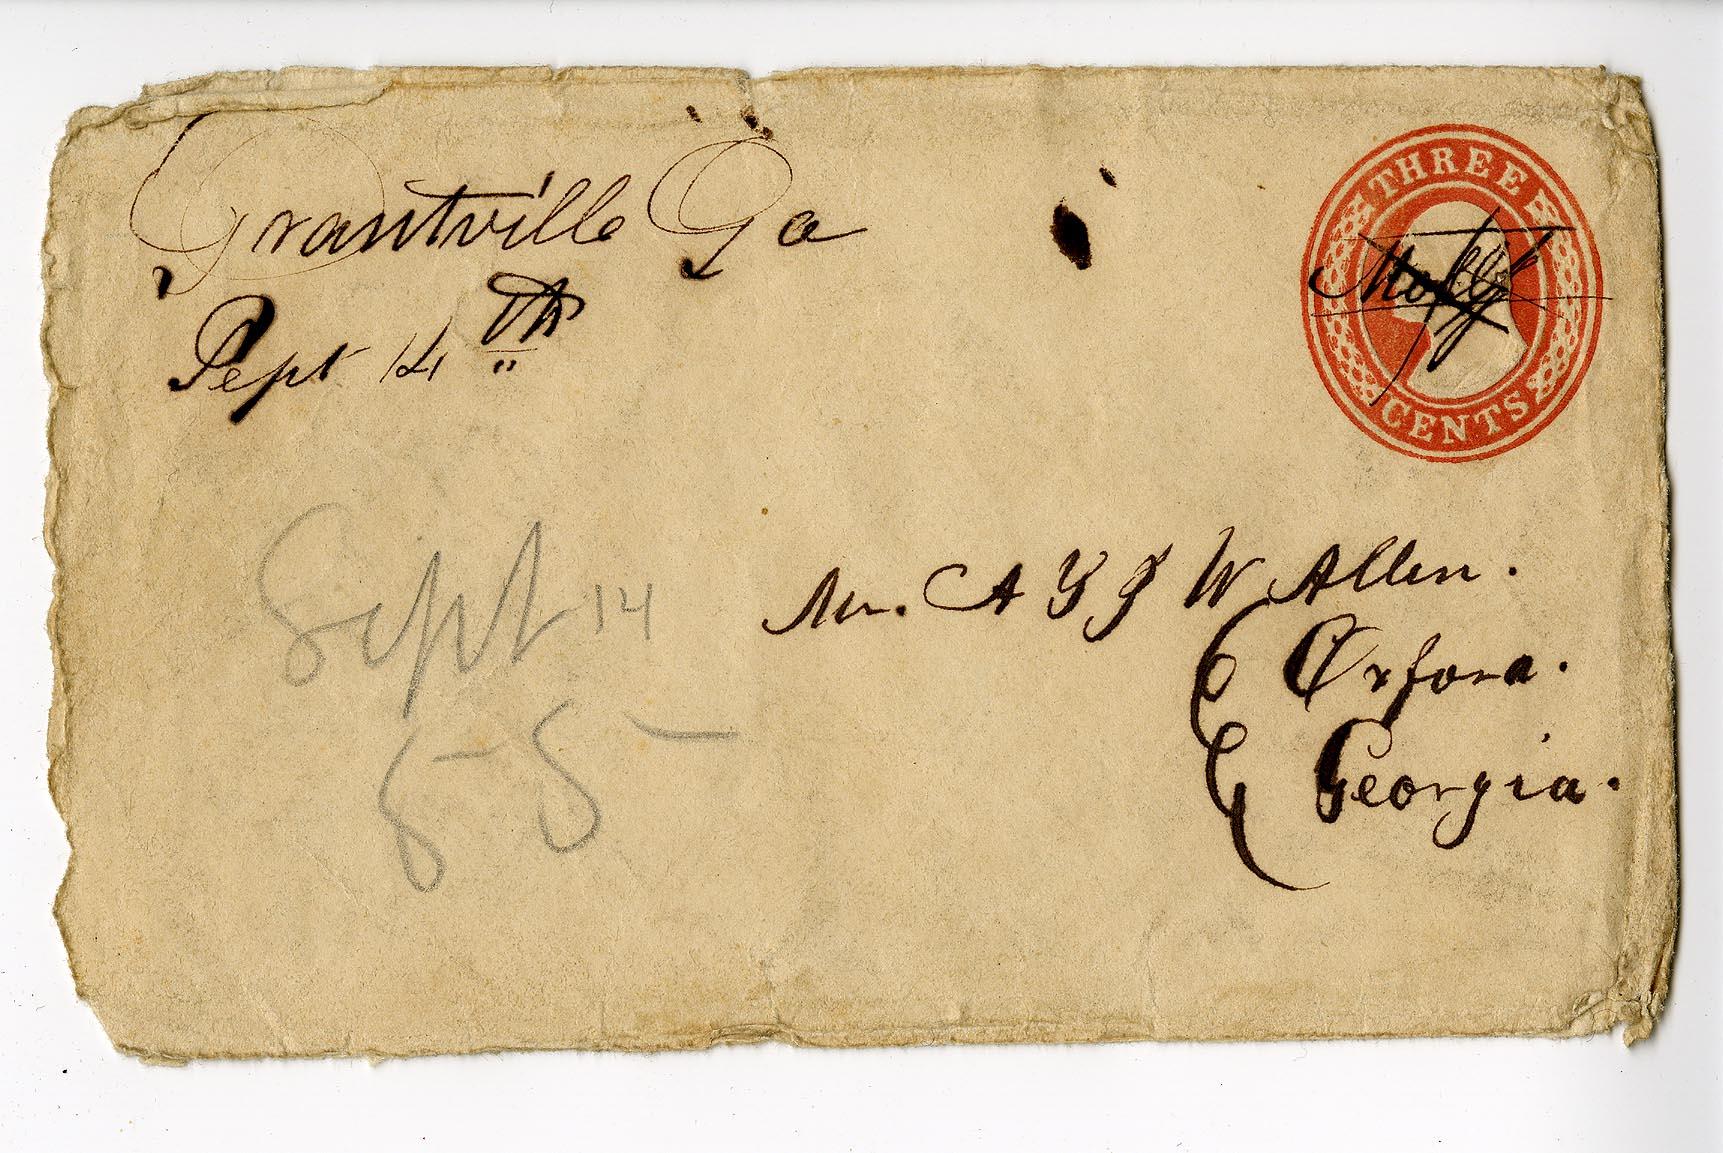 Grantville Ga
Sept 14th
THREE
CENTS
Sept 14
55
Mr. A Y J W Allen.
Oxford.
Georgia.